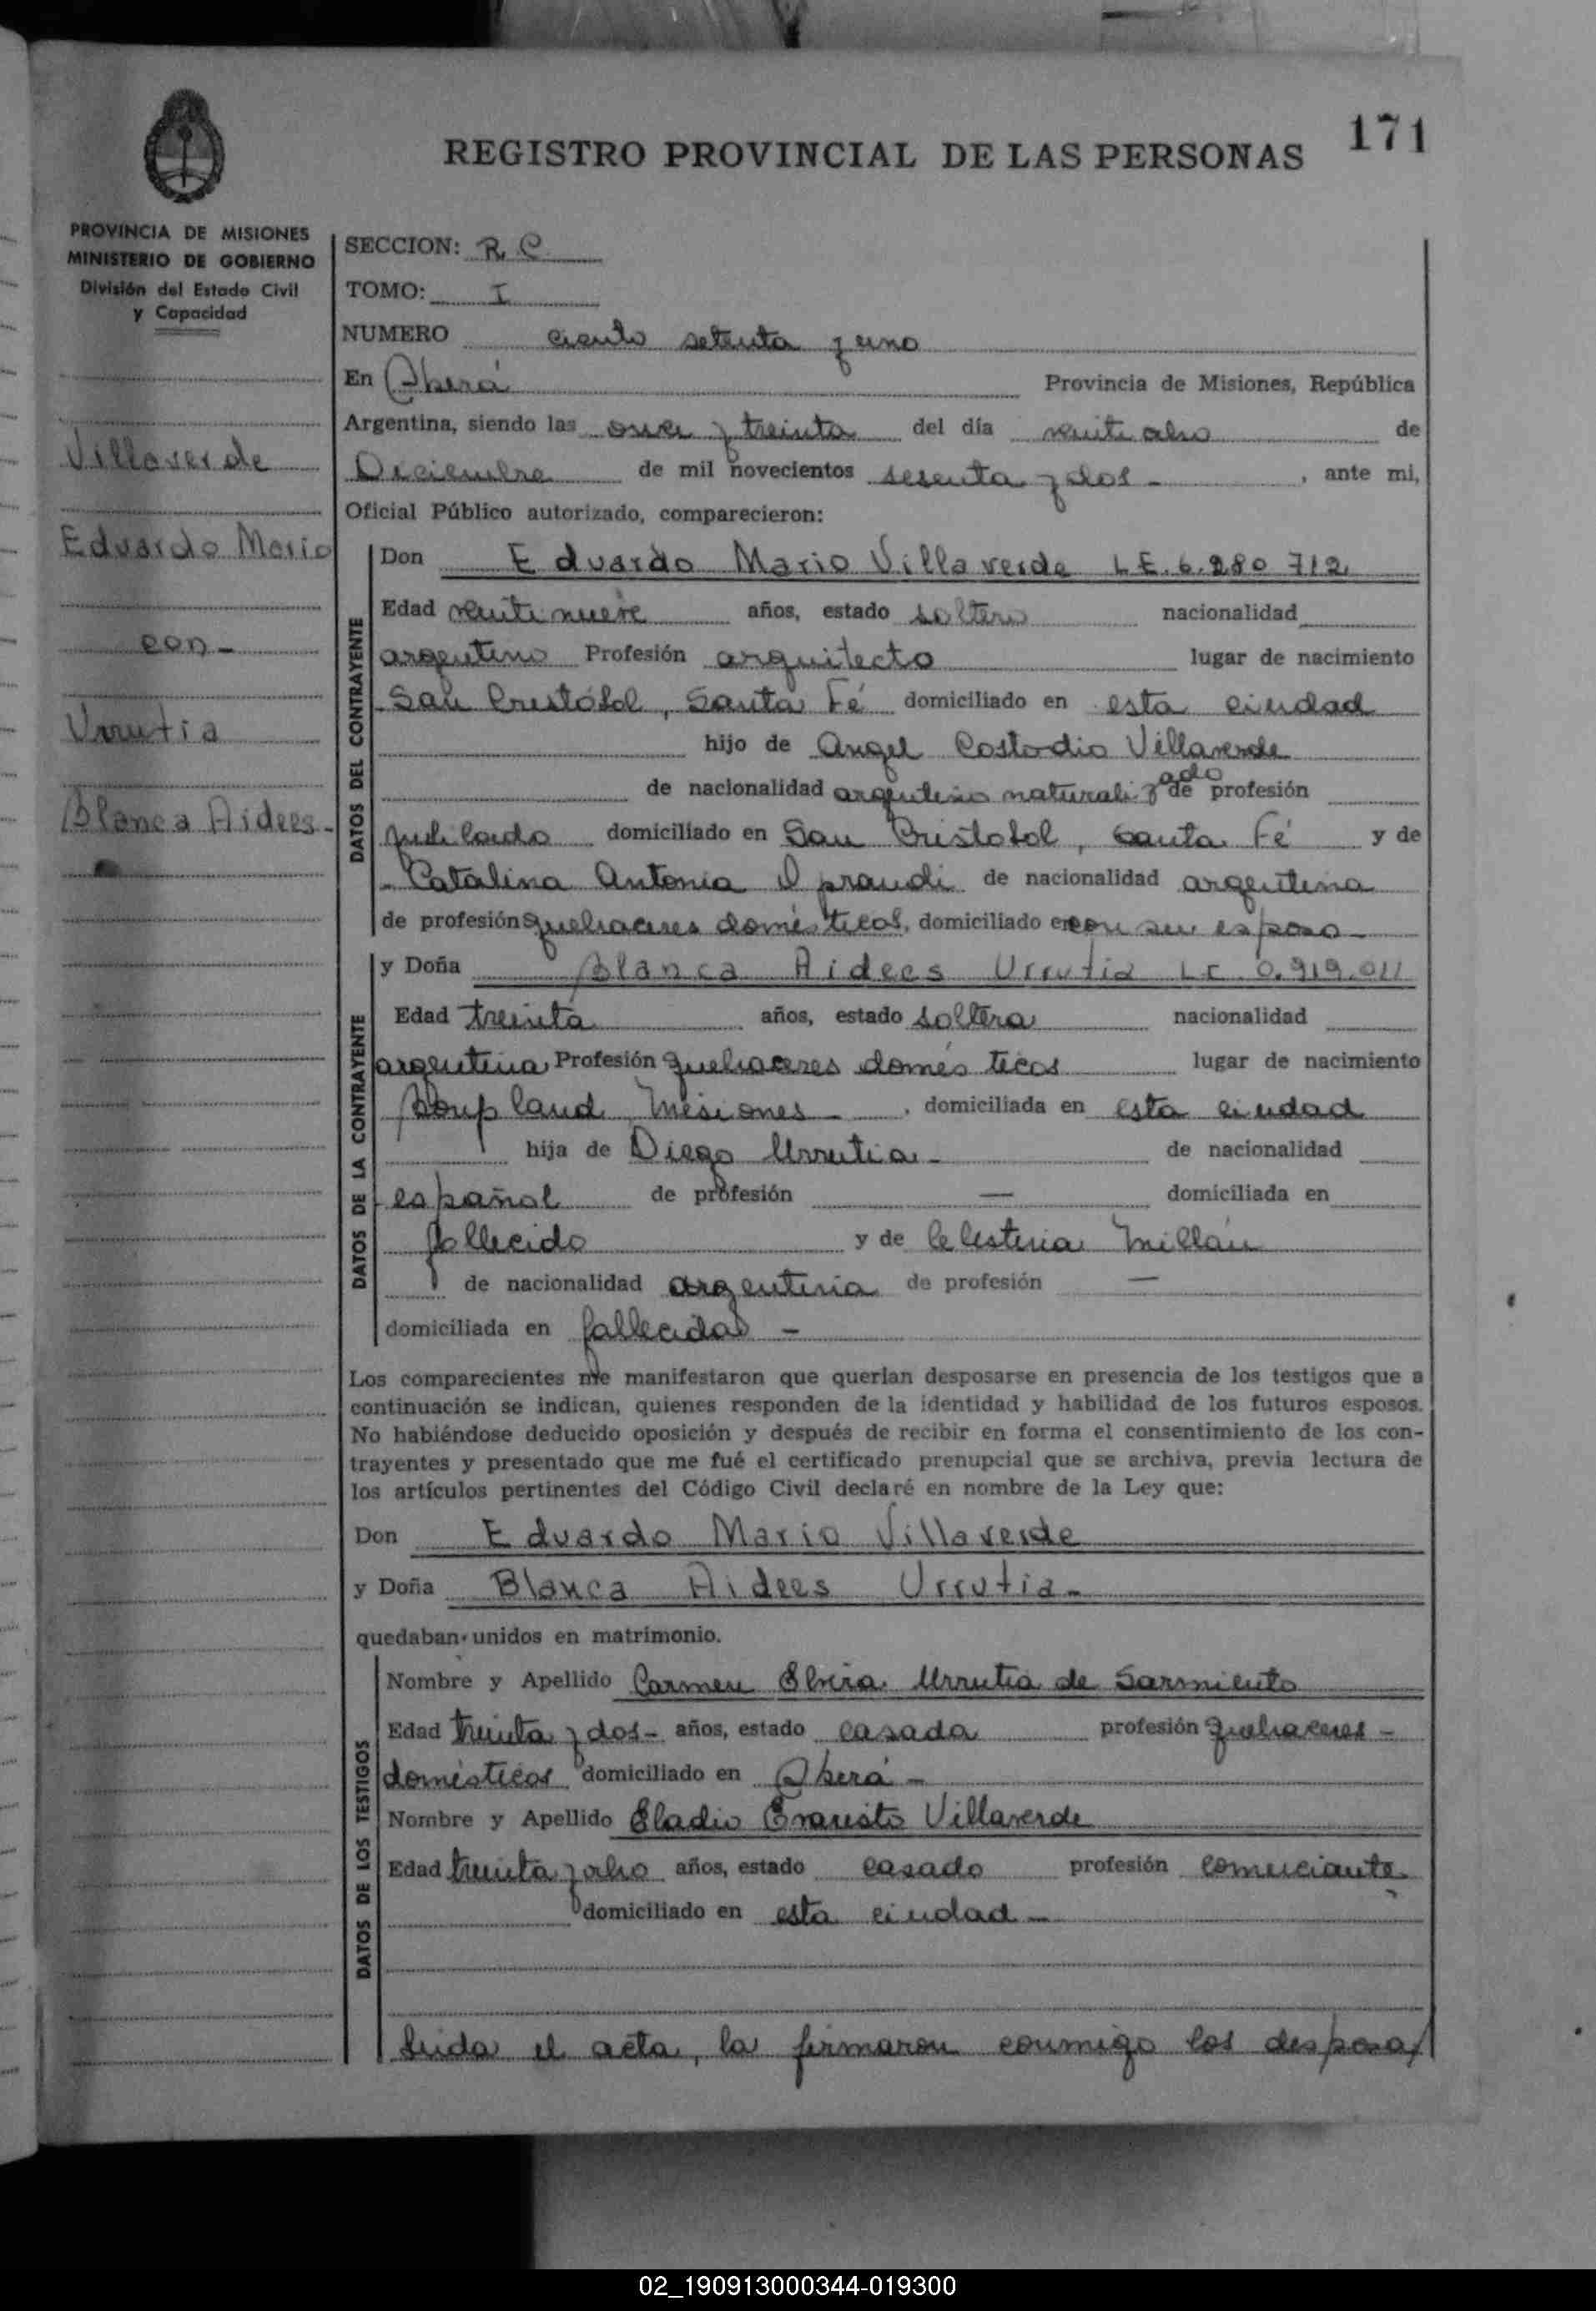 171
REGISTRO PROVINCIAL DE LAS PERSONAS
PROVINCIA DE MISIONES
MINISTERIO DE GOBIERNO
División del Estado Civil
y Capacidad
Villaverde
Eduardo Mario
con-
Urrutia
Blanca Aidees-
SECCION: R.C.
TOMO: I
NUMERO ciento setenta y uno
En Oberá Provincia de Misiones, República
Argentina, siendo las once y treinta del día veintiocho de
Diciembre de mil novecientos sesenta y dos - , ante mi,
Oficial Público autorizado, comparecieron:
DATOS DEL CONTRAYENTE
Don Eduardo Mario Villaverde L.E. 6.280.712
Edad veintinueve años, estado soltero nacionalidad
argentino Profesión arquitecto lugar de nacimiento
San Cristóbal, Santa Fé domiciliado en esta ciudad
hijo de Angel Costodio Villaverde
de nacionalidad argentino naturalizado de profesión
jubilado domiciliado en San Cristobal, Santa Fé y de
- Catalina Antonia Oprandi de nacionalidad argentina
de profesión quehaceres domésticos, domiciliado en con su esposo -
DATOS DE LA CONTRAYENTE
y Doña Blanca Aidees Urrutia L.C. 0.919.011
Edad treinta años, estado soltera nacionalidad
argentina Profesión quehaceres domésticos lugar de nacimiento
Bonpland, Misiones - , domiciliada en esta ciudad
hija de Diego Urrutia - de nacionalidad
español de profesión — domiciliada en
fallecido y de Celestina Millán
de nacionalidad argentina de profesión —
domiciliada en fallecida -
Los comparecientes me manifestaron que querian desposarse en presencia de los testigos que a
continuación se indican, quienes responden de la identidad y habilidad de los futuros esposos.
No habiéndose deducido oposición y después de recibir en forma el consentimiento de los con-
trayentes y presentado que me fué el certificado prenupcial que se archiva, previa lectura de
los artículos pertinentes del Código Civil declaré en nombre de la Ley que:
Don Eduardo Mario Villaverde
y Doña Blanca Aidees Urrutia -
quedaban unidos en matrimonio.
DATOS DE LOS TESTIGOS
Nombre y Apellido Carmen Elvira Urrutia de Sarmiento
Edad treinta y dos - años, estado casada profesión quehaceres -
domésticos domiciliado en Oberá -
Nombre y Apellido Eladio Evaristo Villaverde
Edad treinta y ocho años, estado casado profesión comerciante
domiciliado en esta ciudad -
Leida el acta, la firmaron conmigo los desposa/
02_190913000344-019300